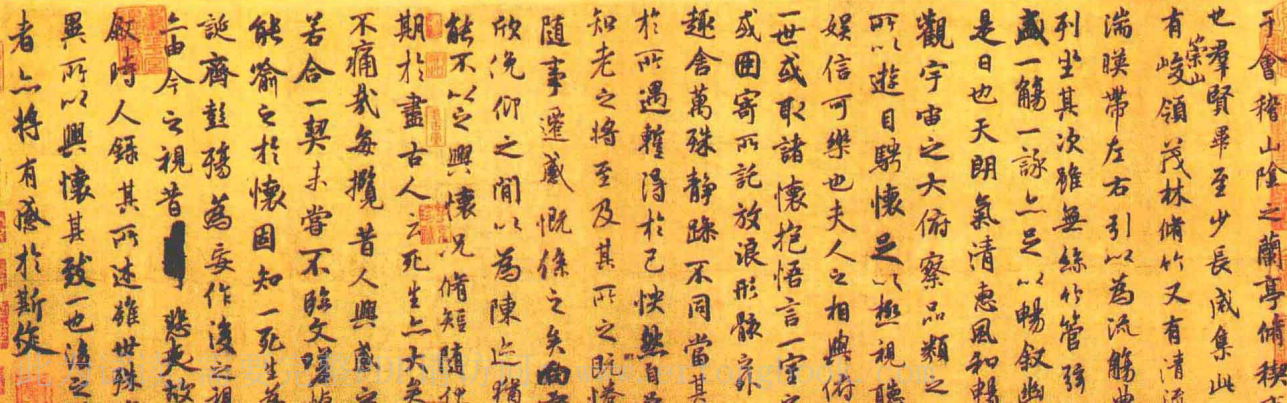 于會稽山陰之蘭亭脩稧
也羣賢畢至少長咸集此
有崇山峻領茂林脩竹又有清流
湍暎帶左右引以為流觴曲
列坐其次雖無絲竹管弦
盛一觴一詠亦足以暢敘幽
是日也天朗氣清惠風和暢
觀宇宙之大俯察品類之
所以遊目騁懷足以極視聽
娛信可樂也夫人之相與俯
一世或取諸懷抱悟言一室
或因寄所託放浪形骸
趣舍萬殊靜躁不同當其
於所遇蹔得於己怏然自
知老之將至及其所之既惓
隨事遷感慨係之矣向
欣俛仰之閒以為陳迹猶
能不以之興懷況脩短隨
期於盡古人云死生亦大矣
不痛哉每攬昔人興感之
若合一契未嘗不臨文嗟悼
能喻之於懷固知一死生為
誕齊彭殤為妄作後之視
亦由今之視昔 悲夫故
敘時人錄其所述雖世殊
異所以興懷其致一也後之
者亦將有感於斯文